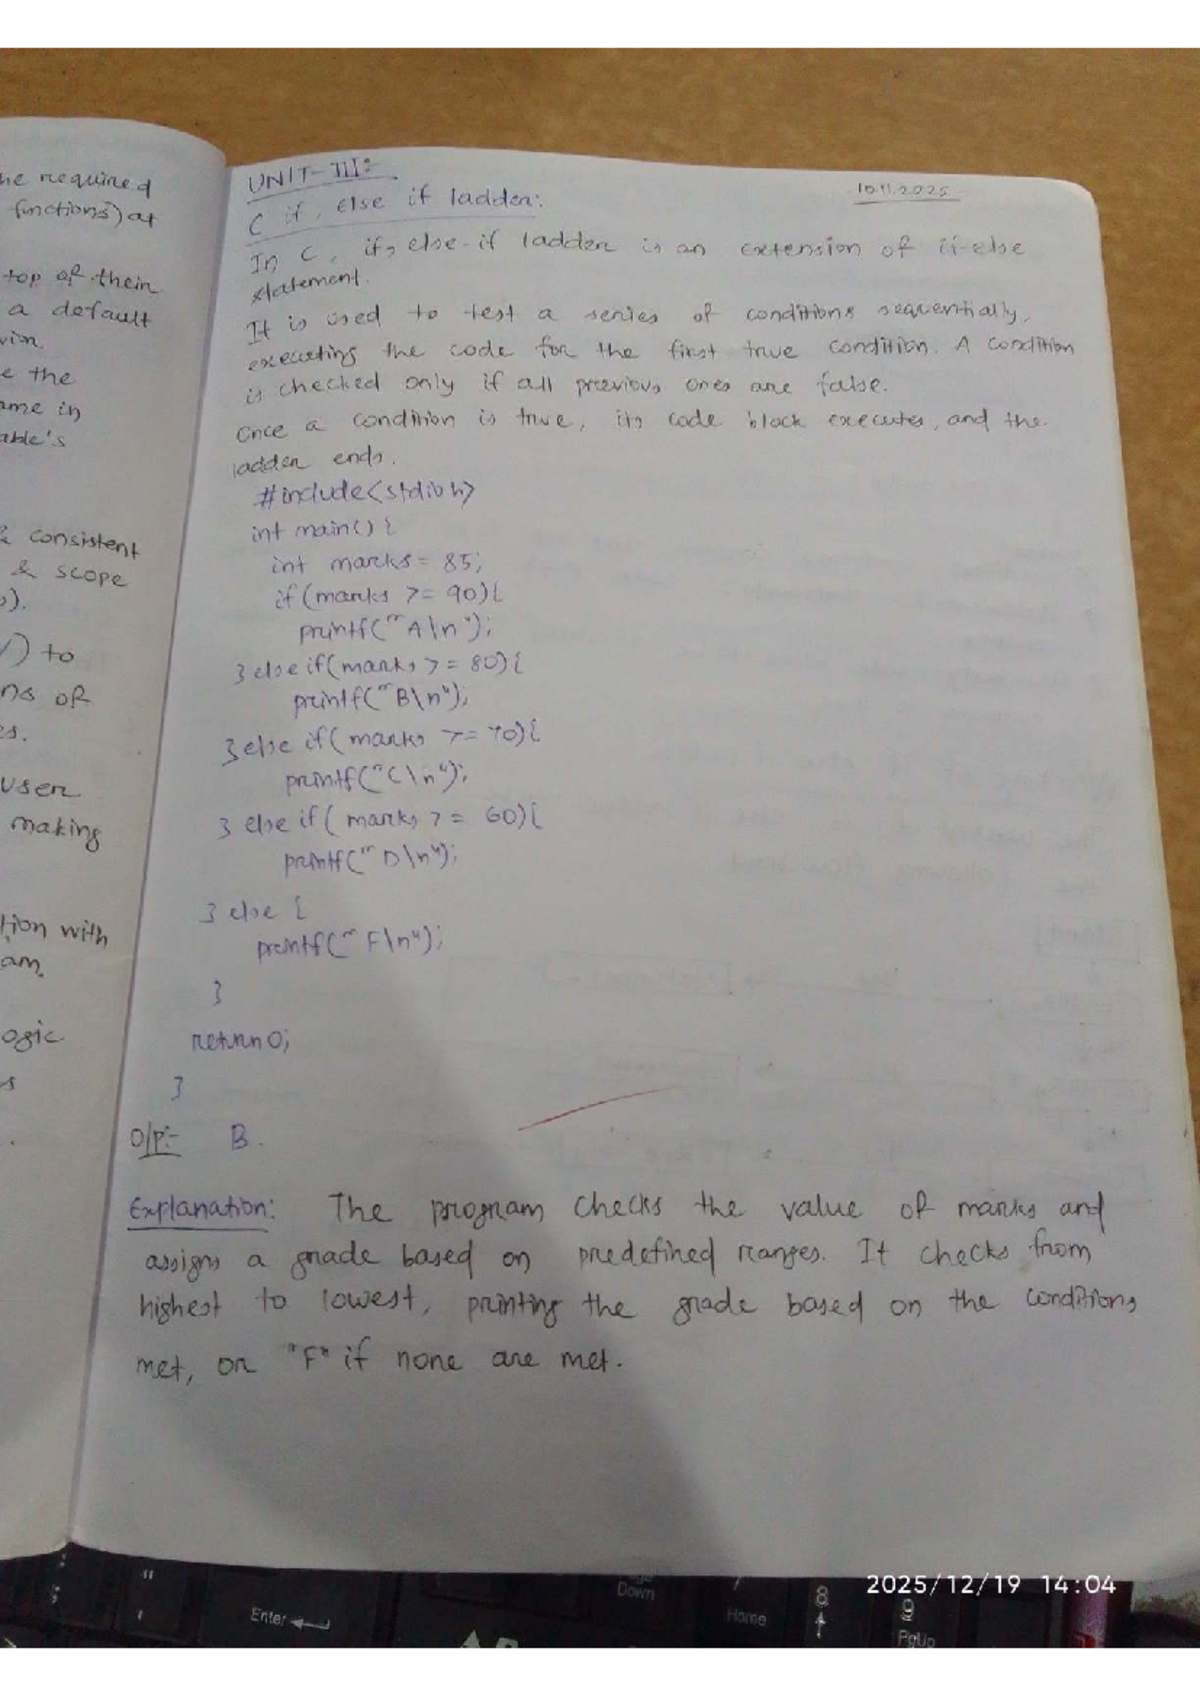 he required
functions) at
top of their
a default
e the
ame in
able's
& consistent
& scope
/) to
ns of
es.
user
making
tion with
am.
ogic
s
UNIT-III:-
10.11.2025
C if, else if ladder:
In C, if, else-if ladder is an extension of if-else
statement.
It is used to test a series of conditions sequentially,
executing the code for the first true condition. A condition
is checked only if all previous ones are false.
Once a condition is true, its code block executes, and the
ladder ends.
#include<stdio.h>
int main() {
int marks = 85;
if (marks >= 90){
printf("A\n");
} else if(marks >= 80){
printf("B\n");
} else if( marks >= 70){
printf("C\n");
} else if( marks >= 60){
printf("D\n");
} else {
printf("F\n");
}
return 0;
}
O/P:- B.
Explanation: The program checks the value of marks and
assigns a grade based on predefined ranges. It checks from
highest to lowest, printing the grade based on the conditions
met, or "F" if none are met.
2025/12/19 14:04
Enter
Down
Home
8
9
PgUp